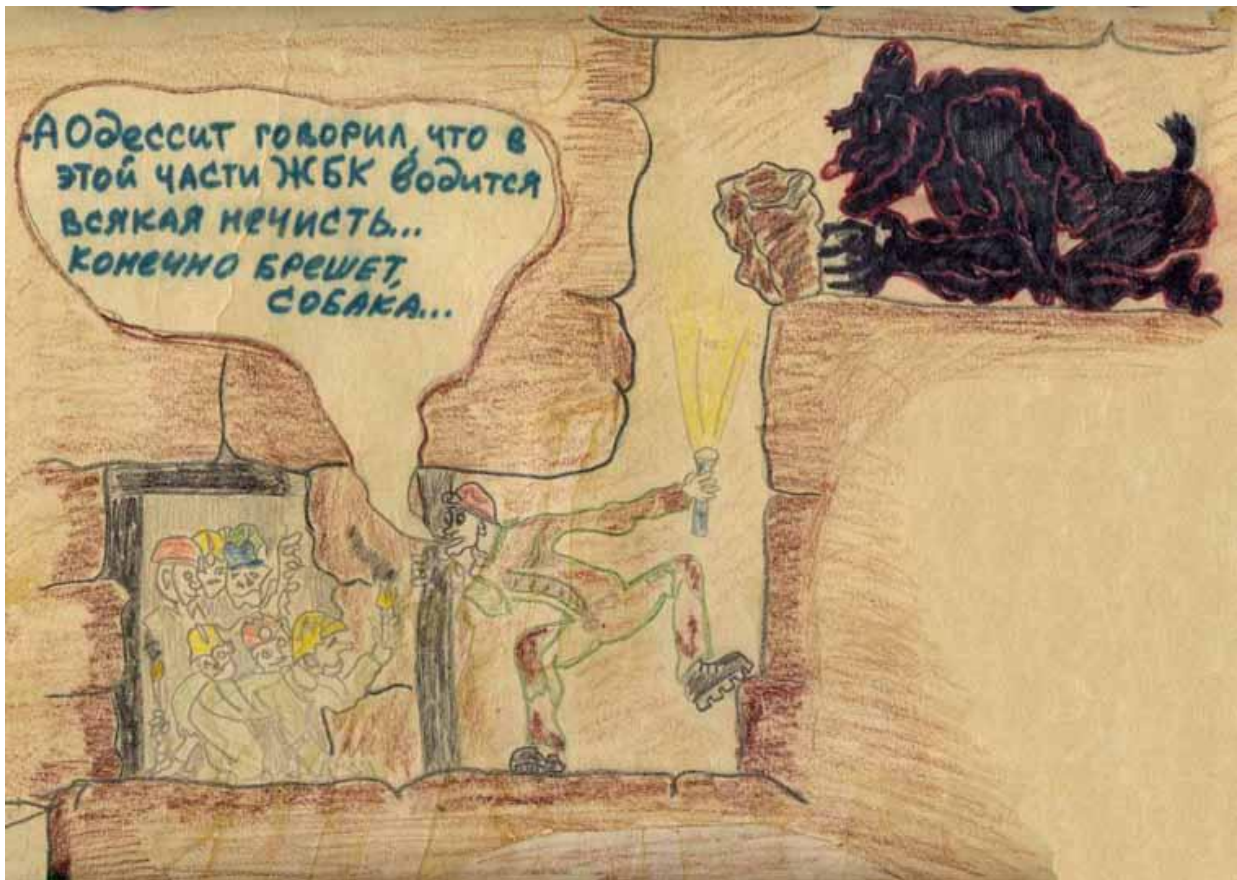 -А Одессит говорил, что в
этой части ЖБК водится
всякая нечисть...
конечно брешет,
собака...